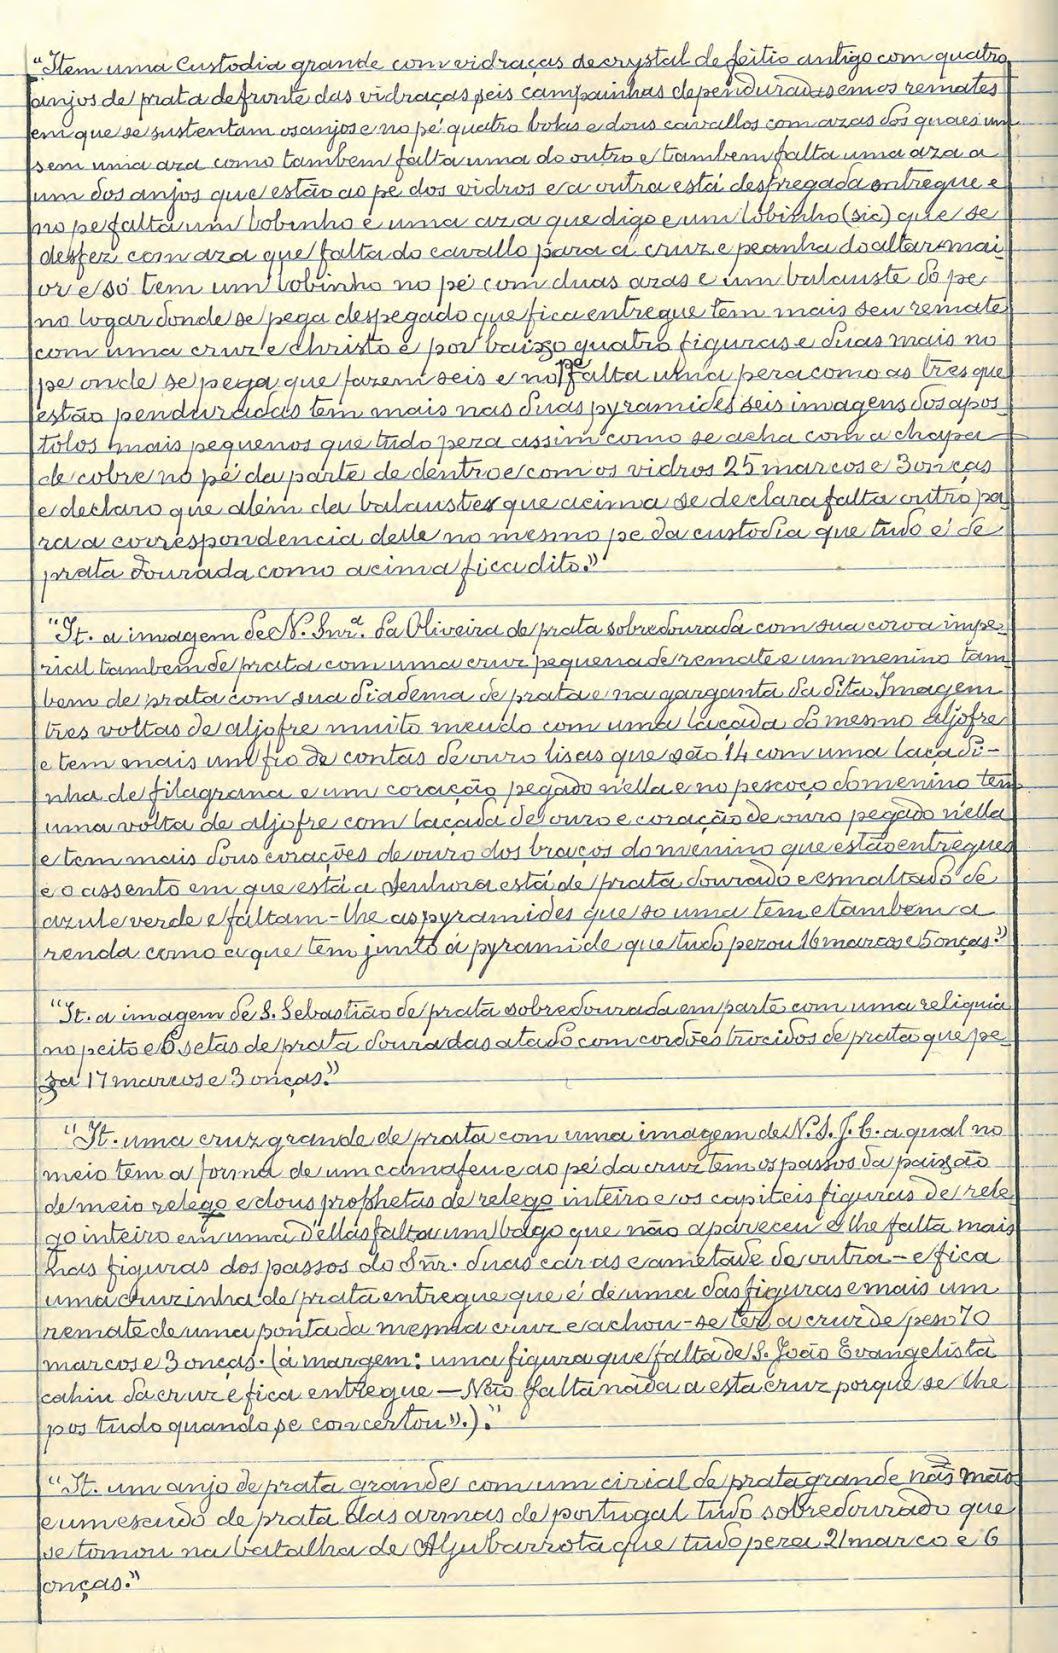 "Item uma Custodia grande com vidraças de crystal de feitio antigo com quatro
anjos de prata defronte das vidraças seis campainhas dependuradas em os remates
em que se sustentam os anjos e no pé quatro bolas e dous cavallos com azas dos quaes um
sem uma aza como tambem falta uma do outro e tambem falta uma aza a
um dos anjos que estão ao pé dos vidros e a outra está despregada entregue e
no pe falta um lobinho e uma aza que digo e um lobinho (sic) que se
desfez com aza que falta do cavallo para a cruz e peanha do altar mai
or e só tem um lobinho no pé com duas azas e um balauste do pe
no logar donde se pega despegado que fica entregue tem mais seu remate
com uma cruz e christo e por baixo quatro figuras e duas mais no
pe onde se pega que fazem seis e no pe falta uma pera como as tres que
estão penduradas tem mais nas duas pyramides seis imagens dos apos_
tolos mais pequenos que tudo peza assim como se acha com a chapa
de cobre no pé da parte de dentro e com os vidros 25 marcos e 3 onças
e declaro que além da balaustes que acima se declara falta outro pa_
ra a correspondencia delle no mesmo pe da custodia que tudo é de
prata dourada como acima fica dito."
"It. a imagem de N. Snrª. da Oliveira de prata sobredourada com sua coroa impe_
rial tambem de prata com uma cruz pequena de remate e um menino tam_
bem de prata com sua diadema de prata e na garganta da dita Imagem
tres voltas de aljofre muito meudo com uma laçada do mesmo aljofre
e tem mais um fio de contas de ouro lisas que são 14 com uma laçadi-
nha de filagrana e um coração pegado n'ella e no pescoço do menino tem
uma volta de aljofre com laçada de ouro e coração de ouro pegado n'ella
e tem mais dous corações de ouro dos braços do menino que estão entregues
e o assento em que está a Senhora está de prata dourado e esmaltado de
azul e verde e faltam-lhe as pyramides que so uma tem e tambem a
renda como a que tem junto á pyramide que tudo pezou 16 marcos e 5 onças."
"It. a imagem de S. Sebastião de prata sobredourada em parte com uma reliquia
no peito e 6 setas de prata douradas atado com cordões trocidos de prata que pe_
za 17 marcos e 3 onças."
"It. uma cruz grande de prata com uma imagem de N. S. J. C. a qual no
meio tem a forma de um camafeu e ao pé da cruz tem os passos da paixão
de meio relego e dous prophetas de relego inteiro e os capiteis figuras de rele_
go inteiro em uma d'ellas falta um bago que não apareceu e lhe falta mais
nas figuras dos passos do Sñr. duas caras e ametade de outra - e fica
uma cruzinha de prata entregue que é de uma das figuras e mais um
remate de uma ponta da mesma cruz e achou-se ter a cruz de peso 70
marcos e 3 onças. (á margem: uma figura que falta de S. João Evangelista
cahiu da cruz e fica entregue — Não falta nada a esta cruz porque se lhe
pos tudo quando se concertou").)"
"It. um anjo de prata grande com um cirial de prata grande nas mãos
e um escudo de prata das armas de portugal tudo sobredourado que
se tomou na batalha de Aljubarrota que tudo peza 21 marco e 6
onças."